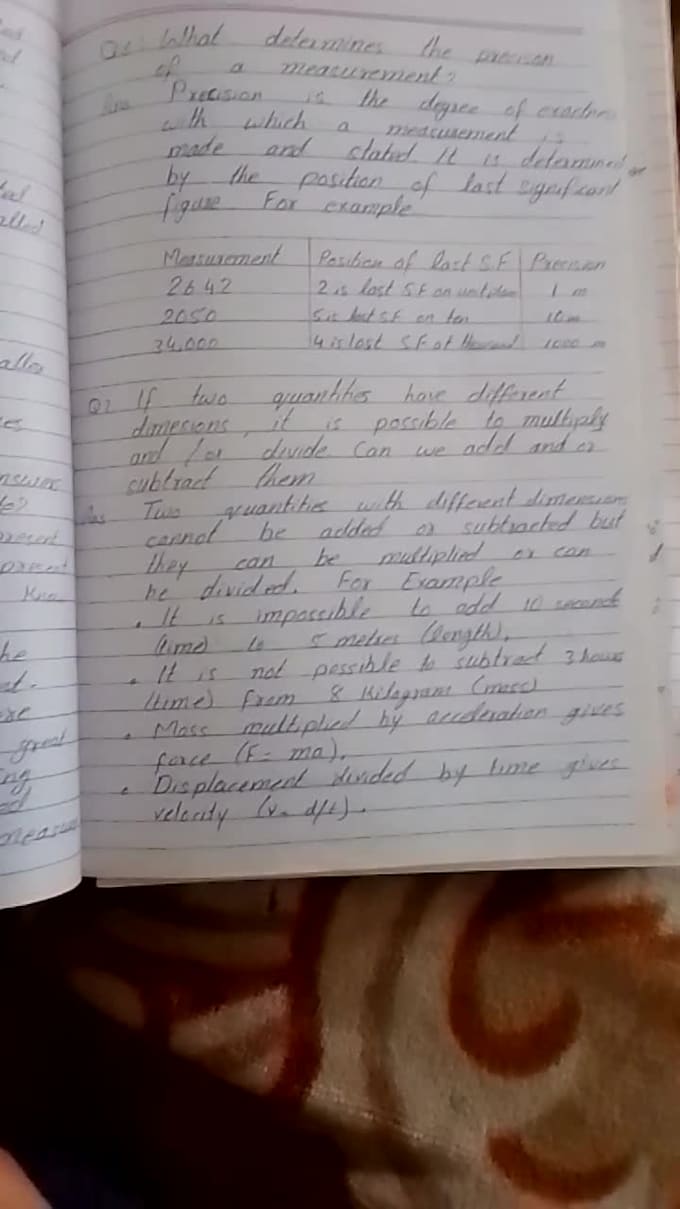 Q6 What determines the precision
of a measurement?
Ans Precision is the degree of exactness
with which a measurement is
made and stated. It is determined
by the position of last significant
figure For example
Measurement Position of last S.F Precision
2642 2 is last S.F on unit place 1 m
2050 5 is last S.F on ten 10 m
34,000 4 is last S.F of thousand 1000 m
Q7 If two quantities have different
dimesions, it is possible to multiply
and / or divide Can we add and or
subtract them
Ans Two quantities with different dimensions
cannot be added or subtracted but
they can be multiplied or can
be divided. For Example
. It is impossible to add 10 seconds
(time) to 5 metres (length).
. It is not possible to subtract 3 hours
(time) from 8 kilograms (mass)
. Mass multiplied by acceleration gives
force (F = ma).
. Displacement divided by time gives
velocity (v = d/t).